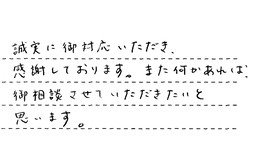 誠実に御対応いただき、
感謝しております。また何かあれば、
御相談させていただきたいと
思います。